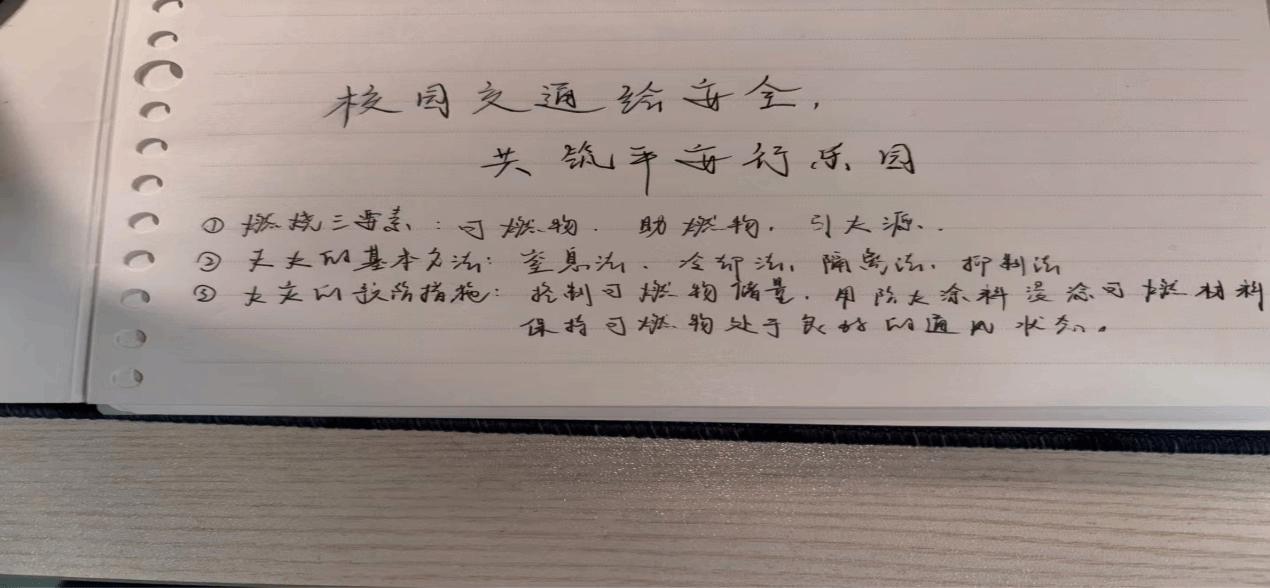 校园交通绘安全,
共筑平安行乐园
① 燃烧三要素:可燃物、助燃物、引火源.
② 灭火的基本方法:窒息法、冷却法、隔离法、抑制法
③ 火灾的预防措施:控制可燃物储量、用防火涂料浸涂可燃材料
保持可燃物处于良好的通风状态。